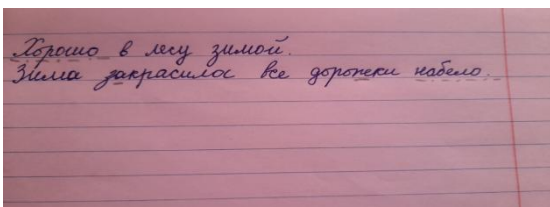 Хорошо в лесу зимой.
Зима закрасила все дорожки набело.